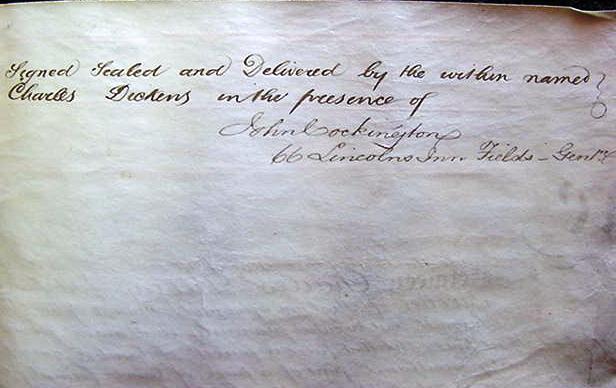 Signed Sealed and Delivered by the within named
Charles Dickens in the presence of
John Cockington
66 Lincolns Inn Fields - Gentn